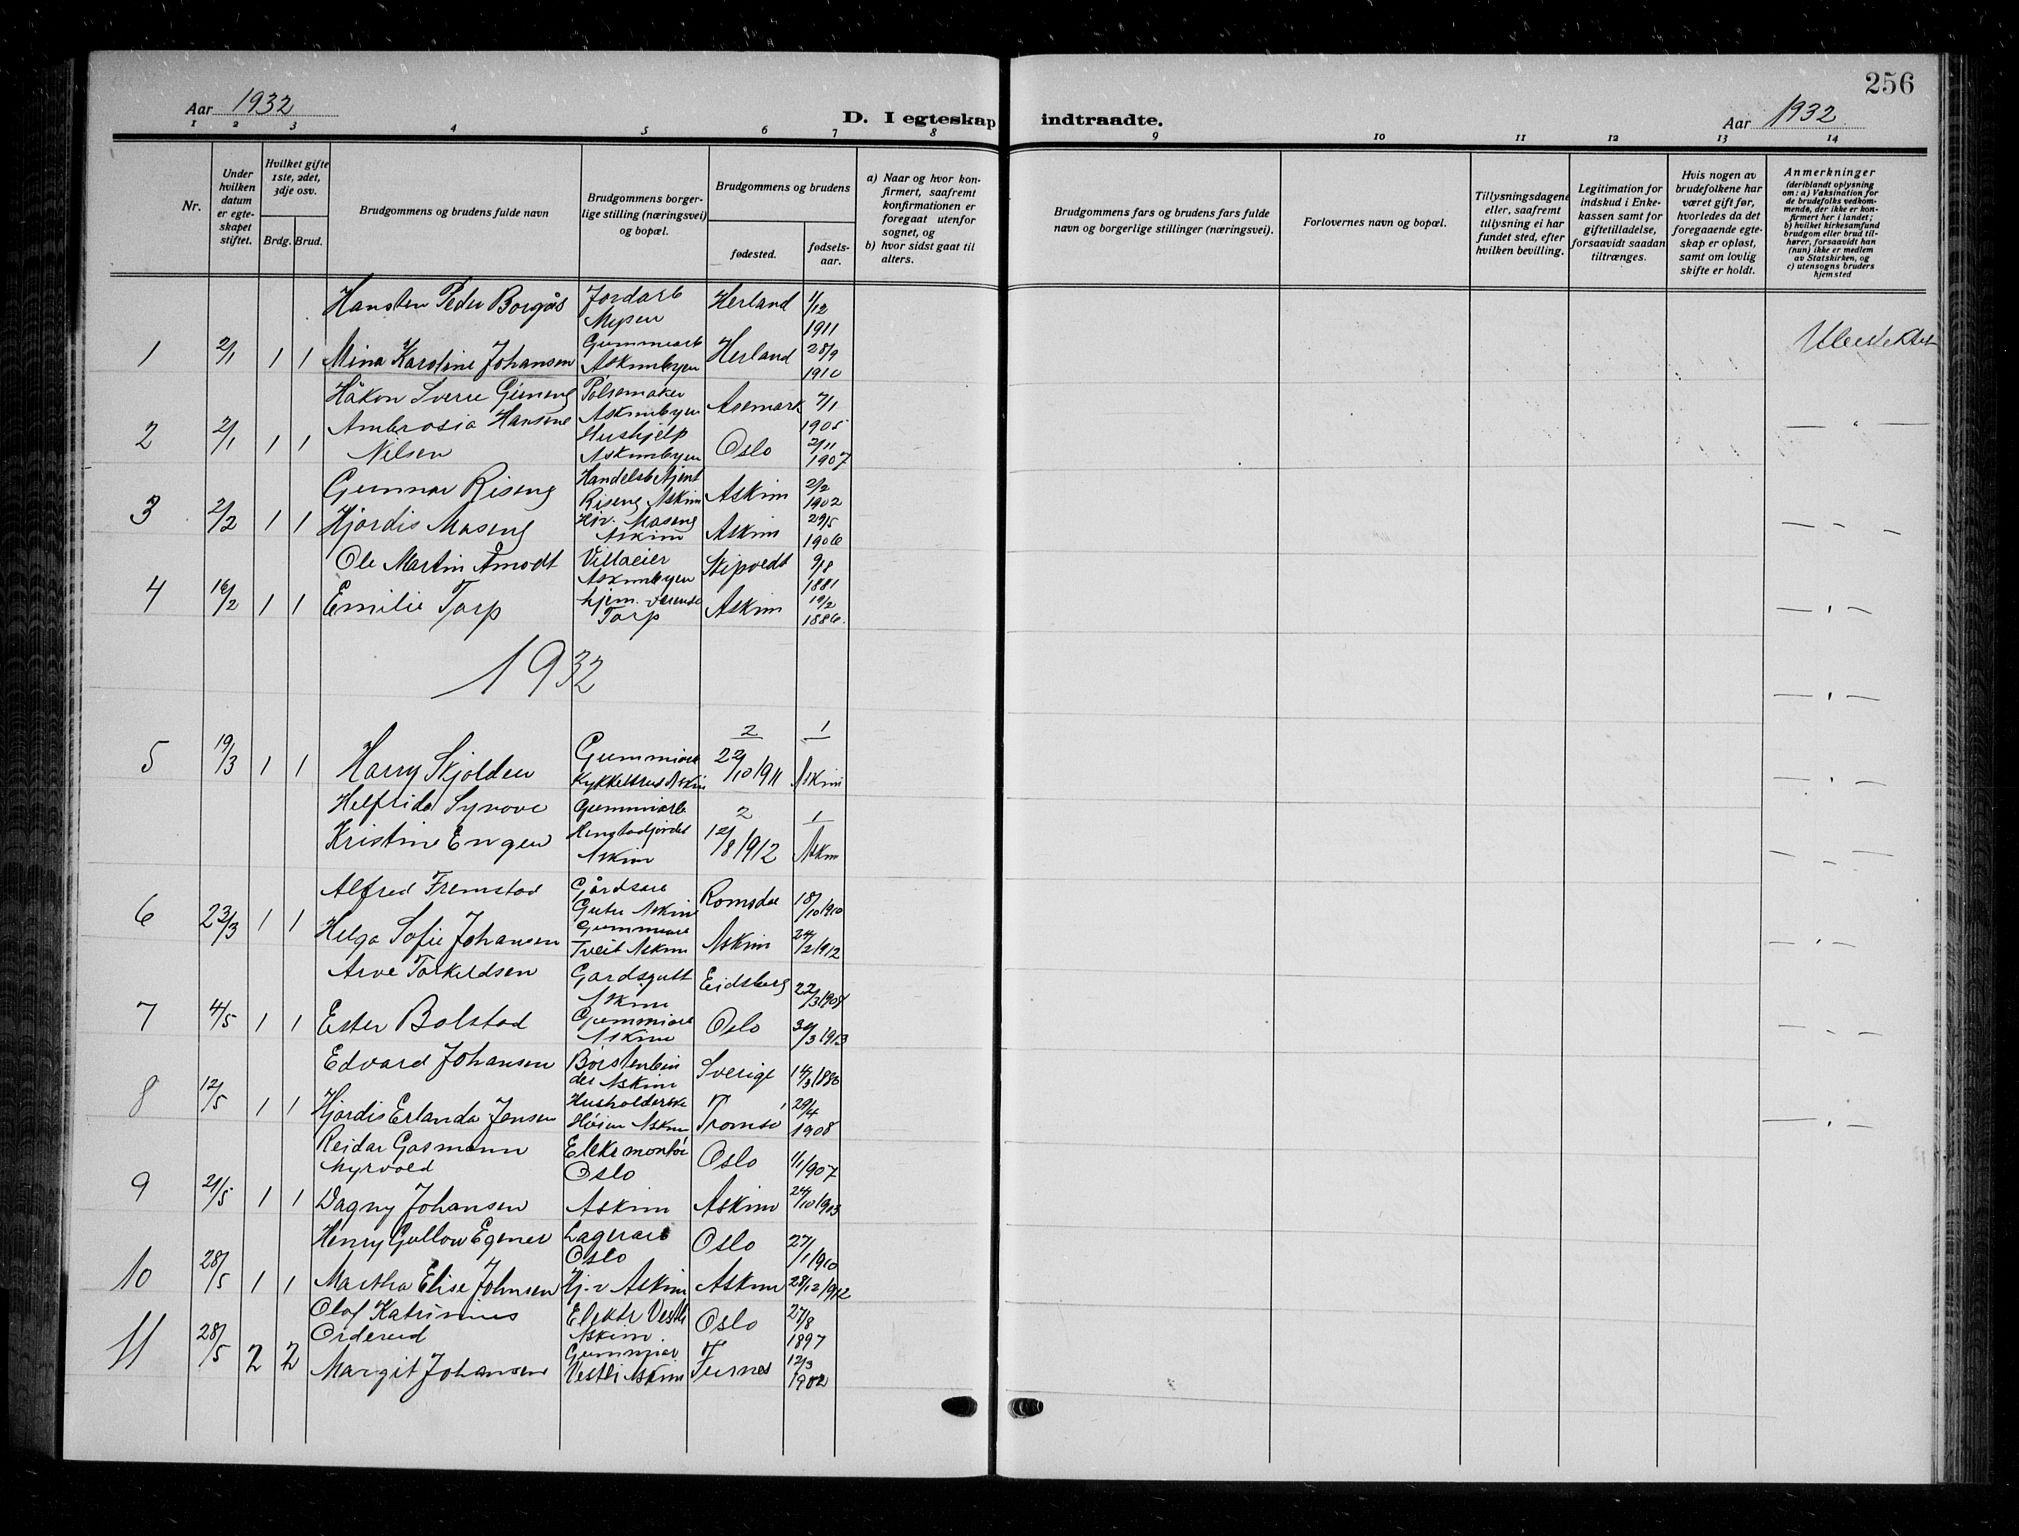 256
Aar 1932
D. I egteskap indtraadte.
Aar 1932
1 2 3 4 5 6 7 8 9 10 11 12 13 14
Nr.
Under hvilken datum er egte-skapet stiftet.
Hvilket gifte 1ste, 2det, 3dje osv.
Brdg. Brud.
Brudgommens og brudens fulde navn
Brudgommens borger-lige stilling (næringsvei) og bopæl.
Brudgommens og brudens
fødested.
fødsels-aar.
a) Naar og hvor kon-firmert, saafremt konfirmationen er foregaat utenfor sognet, og
b) hvor sidst gaat til alters.
Brudgommens fars og brudens fars fulde navn og borgerlige stillinger (næringsvei).
Forlovernes navn og bopæl.
Tillysningsdagene eller, saafremt tillysning ei har fundet sted, efter hvilken bevilling.
Legitimation for indskud i Enke-kassen samt for giftetilladelse, forsaavidt saadan tiltrænges.
Hvis nogen av brudefolkene har været gift før, hvorledes da det foregaaende egte-skap er opløst, samt om lovlig skifte er holdt.
Anmerkninger
(deriblandt oplysning om: a) Vaksination for de brudefolks vedkom-mende, der ikke er kon-firmert her i landet; b) hvilket kirkesamfund brudgom eller brud til-hører, forsaavidt han (hun) ikke er medlem av Statskirken, og c) utensogns bruders hjemsted
Hansten Peder Borgås Jordarb Mysen Herland 1/12 1911
1 2/1 1 1 Mina Karoline Johansen Gummiarb Askimbyen Herland 28/9 1910
Håkon Sverre Gimeng Pølsemaker Askimbyen Aremark 7/1 1905
2 2/1 1 1 Ambrosia Hansine Nilsen Hushjelp Askimbyen Oslo 2/11 1907
— " —
Gunnar Riseng Handelsbetjent Riseng Askim Askim 2/2 1902
3 2/2 1 1 Hjørdis Maseng Hjv. Maseng Askim Askim 29/5 1906
— " —
Ole Martin Åmodt Villaeier Askimbyen Skipvedt 9/8 1881
4 16/2 1 1 Emilie Torp hjem. værende Torp Askim 19/2 1886.
— " —
1932
— " —
5 19/3 1 1 Harry Skjolden Gummiarb Kykkelsrud Askim 2 22/10 1911 1 Askim
— " —
Helfrida Synøve Kristine Engen Gummiarb Askim 2 12/8 1912 1 Askim
— " —
Alfred Fremstad Gårdsarb Askim Romsdal 18/10 1910
6 23/3 1 1 Helga Sofie Johansen Gummiarb Tveit Askim Askim 24/2 1912
— " —
Arve Torkeldsen Gardsgutt Askim Eidsberg 22/3 1908
7 4/5 1 1 Ester Bolstad Gummiarb Askim Oslo 30/3 1913
— " —
Edvard Johansen Børstenbinder Askim Sverige 14/3 1886
8 12/5 1 1 Hjørdis Erlanda Jensen Husholderske Askim Tromsø 29/4 1908
— " —
Reidar Gasmann Myrvold Elektr montør Oslo Oslo 1/1 1907
9 21/5 1 1 Dagny Johansen Askim Askim 24/10 1903
Henry Gullow Egener Lagerarb Oslo Oslo 27/1 1910
10 28/5 1 1 Martha Elise Johnsen Hj. v Askim Askim 28/12 1912
Olaf Katrinius Ordereid Elektr Vestli Askim. Oslo 27/8 1897
11 28/5 2 2 Margit Johansen Gummiar Vestli Askim Furnes 12/3 1902